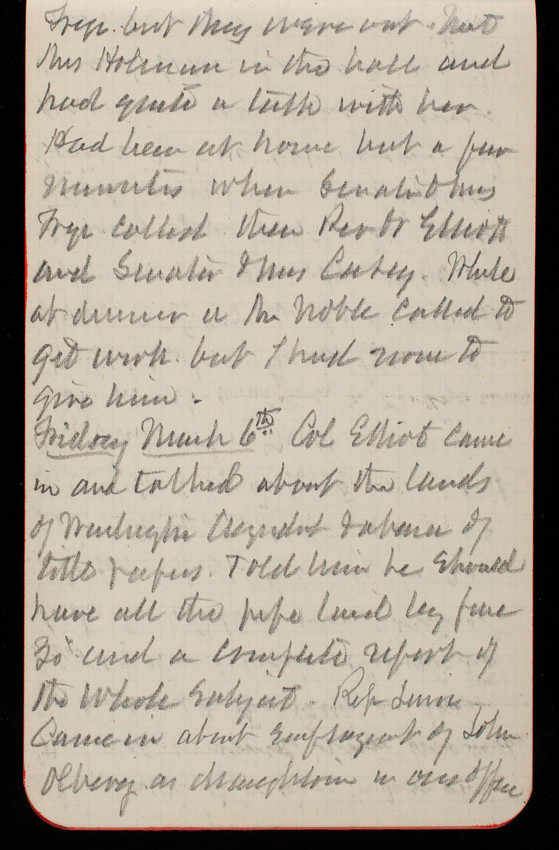 Frye but they were out. Met
Mrs Holman in the hall and
had quite a talk with her.
Had been at home but a few
minutes when Senator & Mrs
Frye called. then Rev Dr Elliott
and Senator & Mrs Casey. While
at dinner a Mr Noble called to
get work but I had none to
give him.
Friday March 6th Col Elliot came
in and talked about the lands
of Washington Aqueduct & of
title papers. Told him he should
have all the pipe land by June
30 and a complete report of
the whole subject. Rep
Came in about of John
as draughtsman in our office